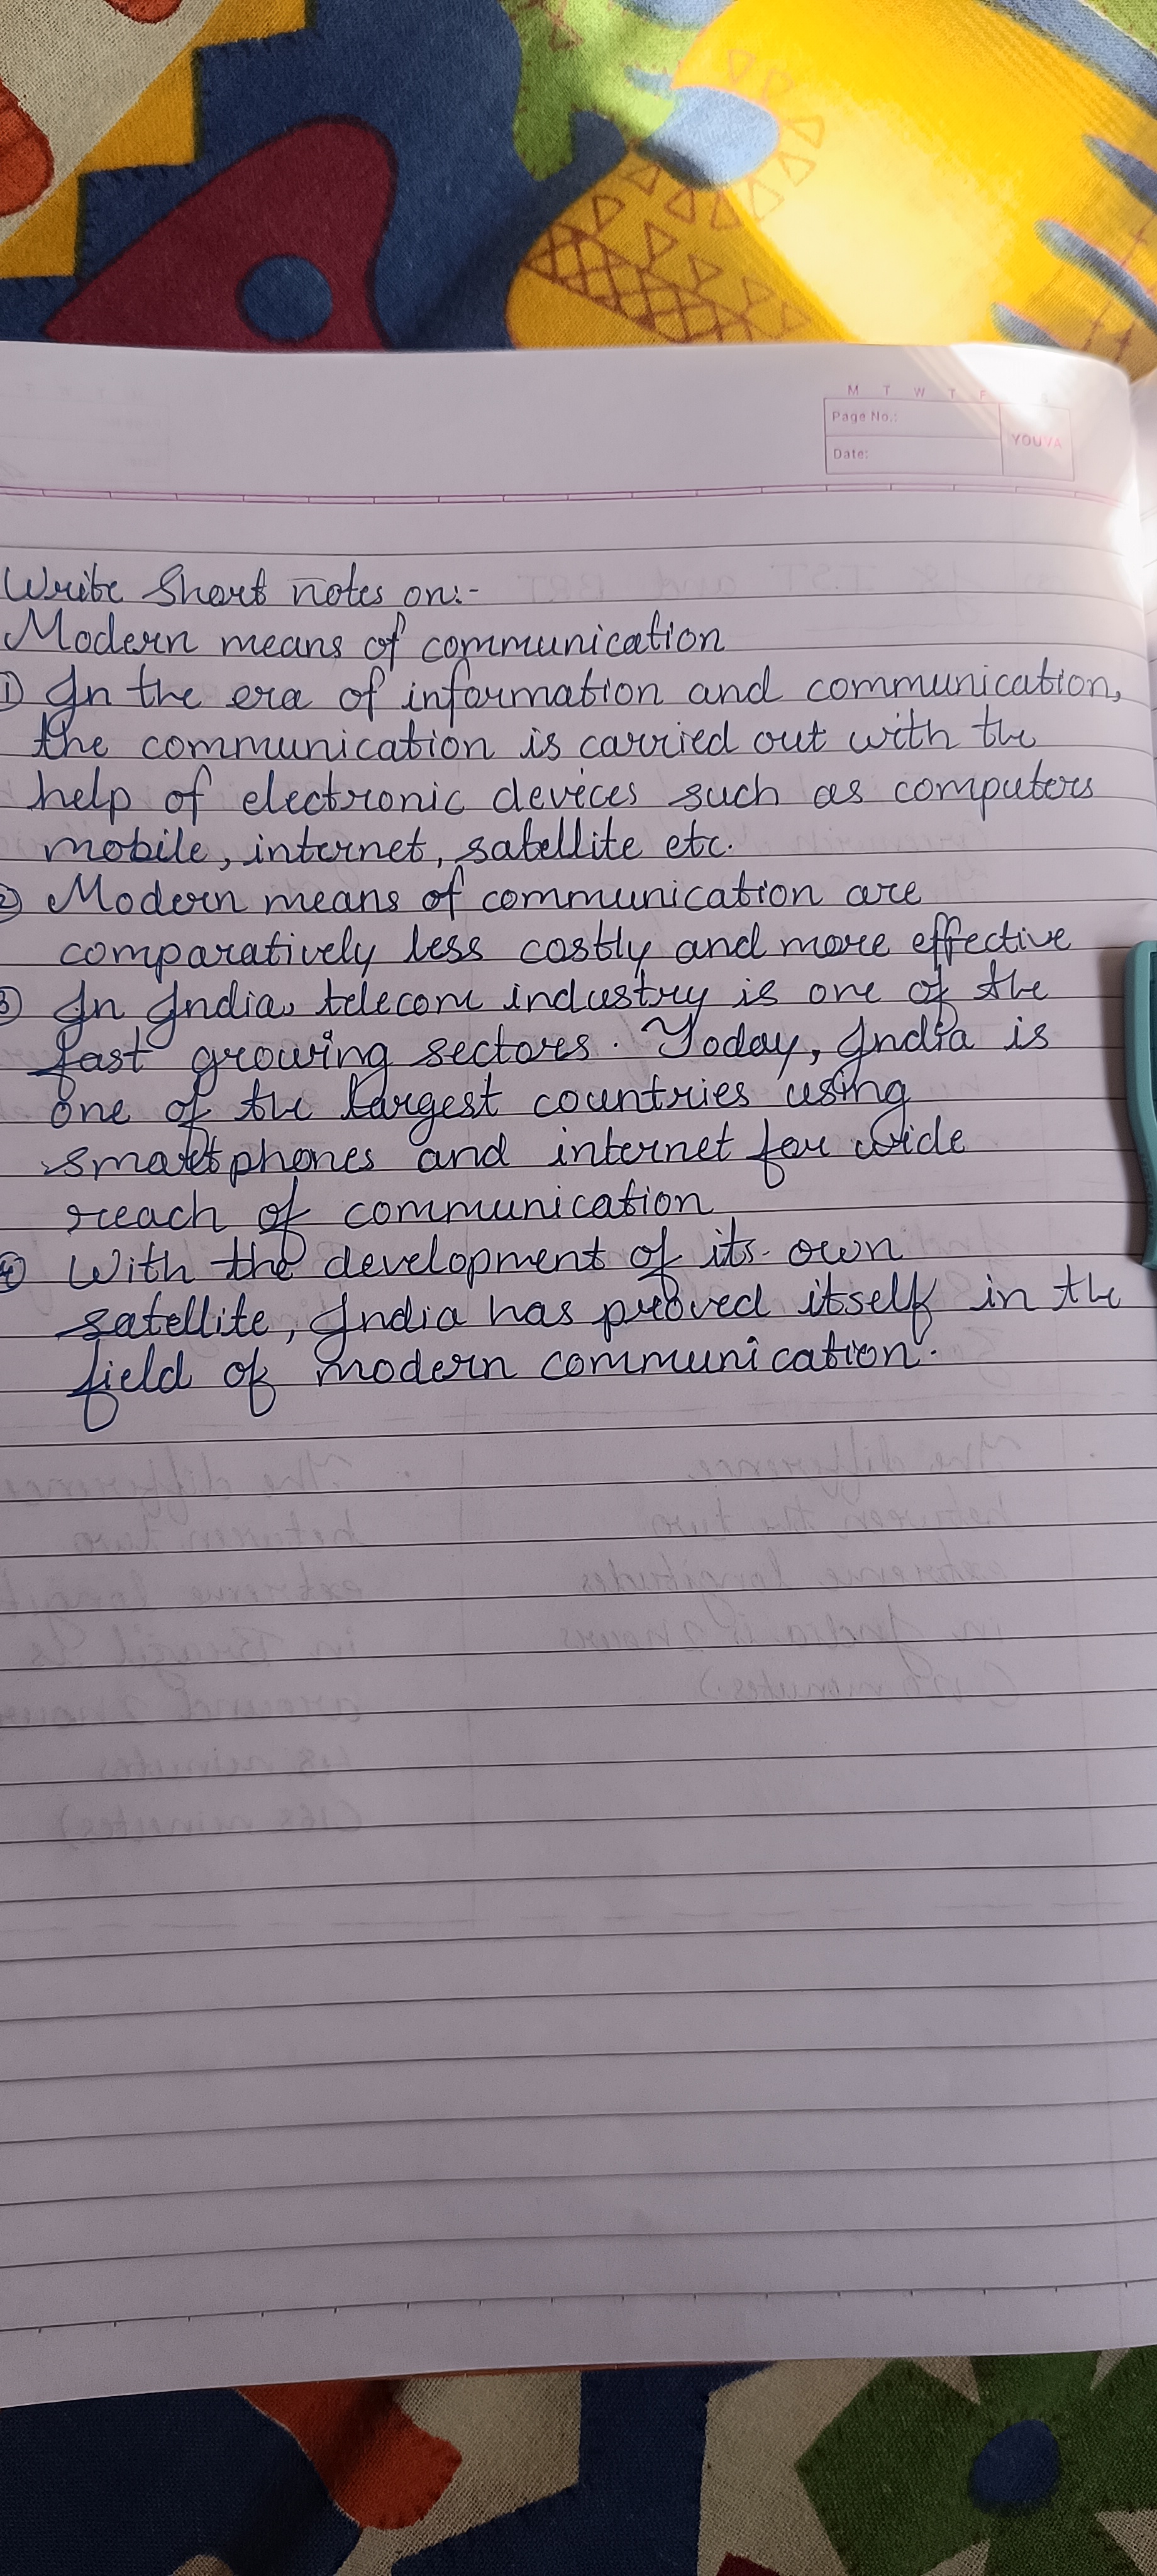 M T W T F
Page No.:
YOUVA
Date:
Write Short notes on:-
Modern means of communication
① In the era of information and communication,
the communication is carried out with the
help of electronic devices such as computers
mobile, internet, satellite etc.
② Modern means of communication are
comparatively less costly and more effective
③ In India, telecom industry is one of the
fast growing sectors. Today, India is
one of the largest countries using
smartphones and internet for wide
reach of communication
④ With the development of its own
satellite, India has proved itself in the
field of modern communication.